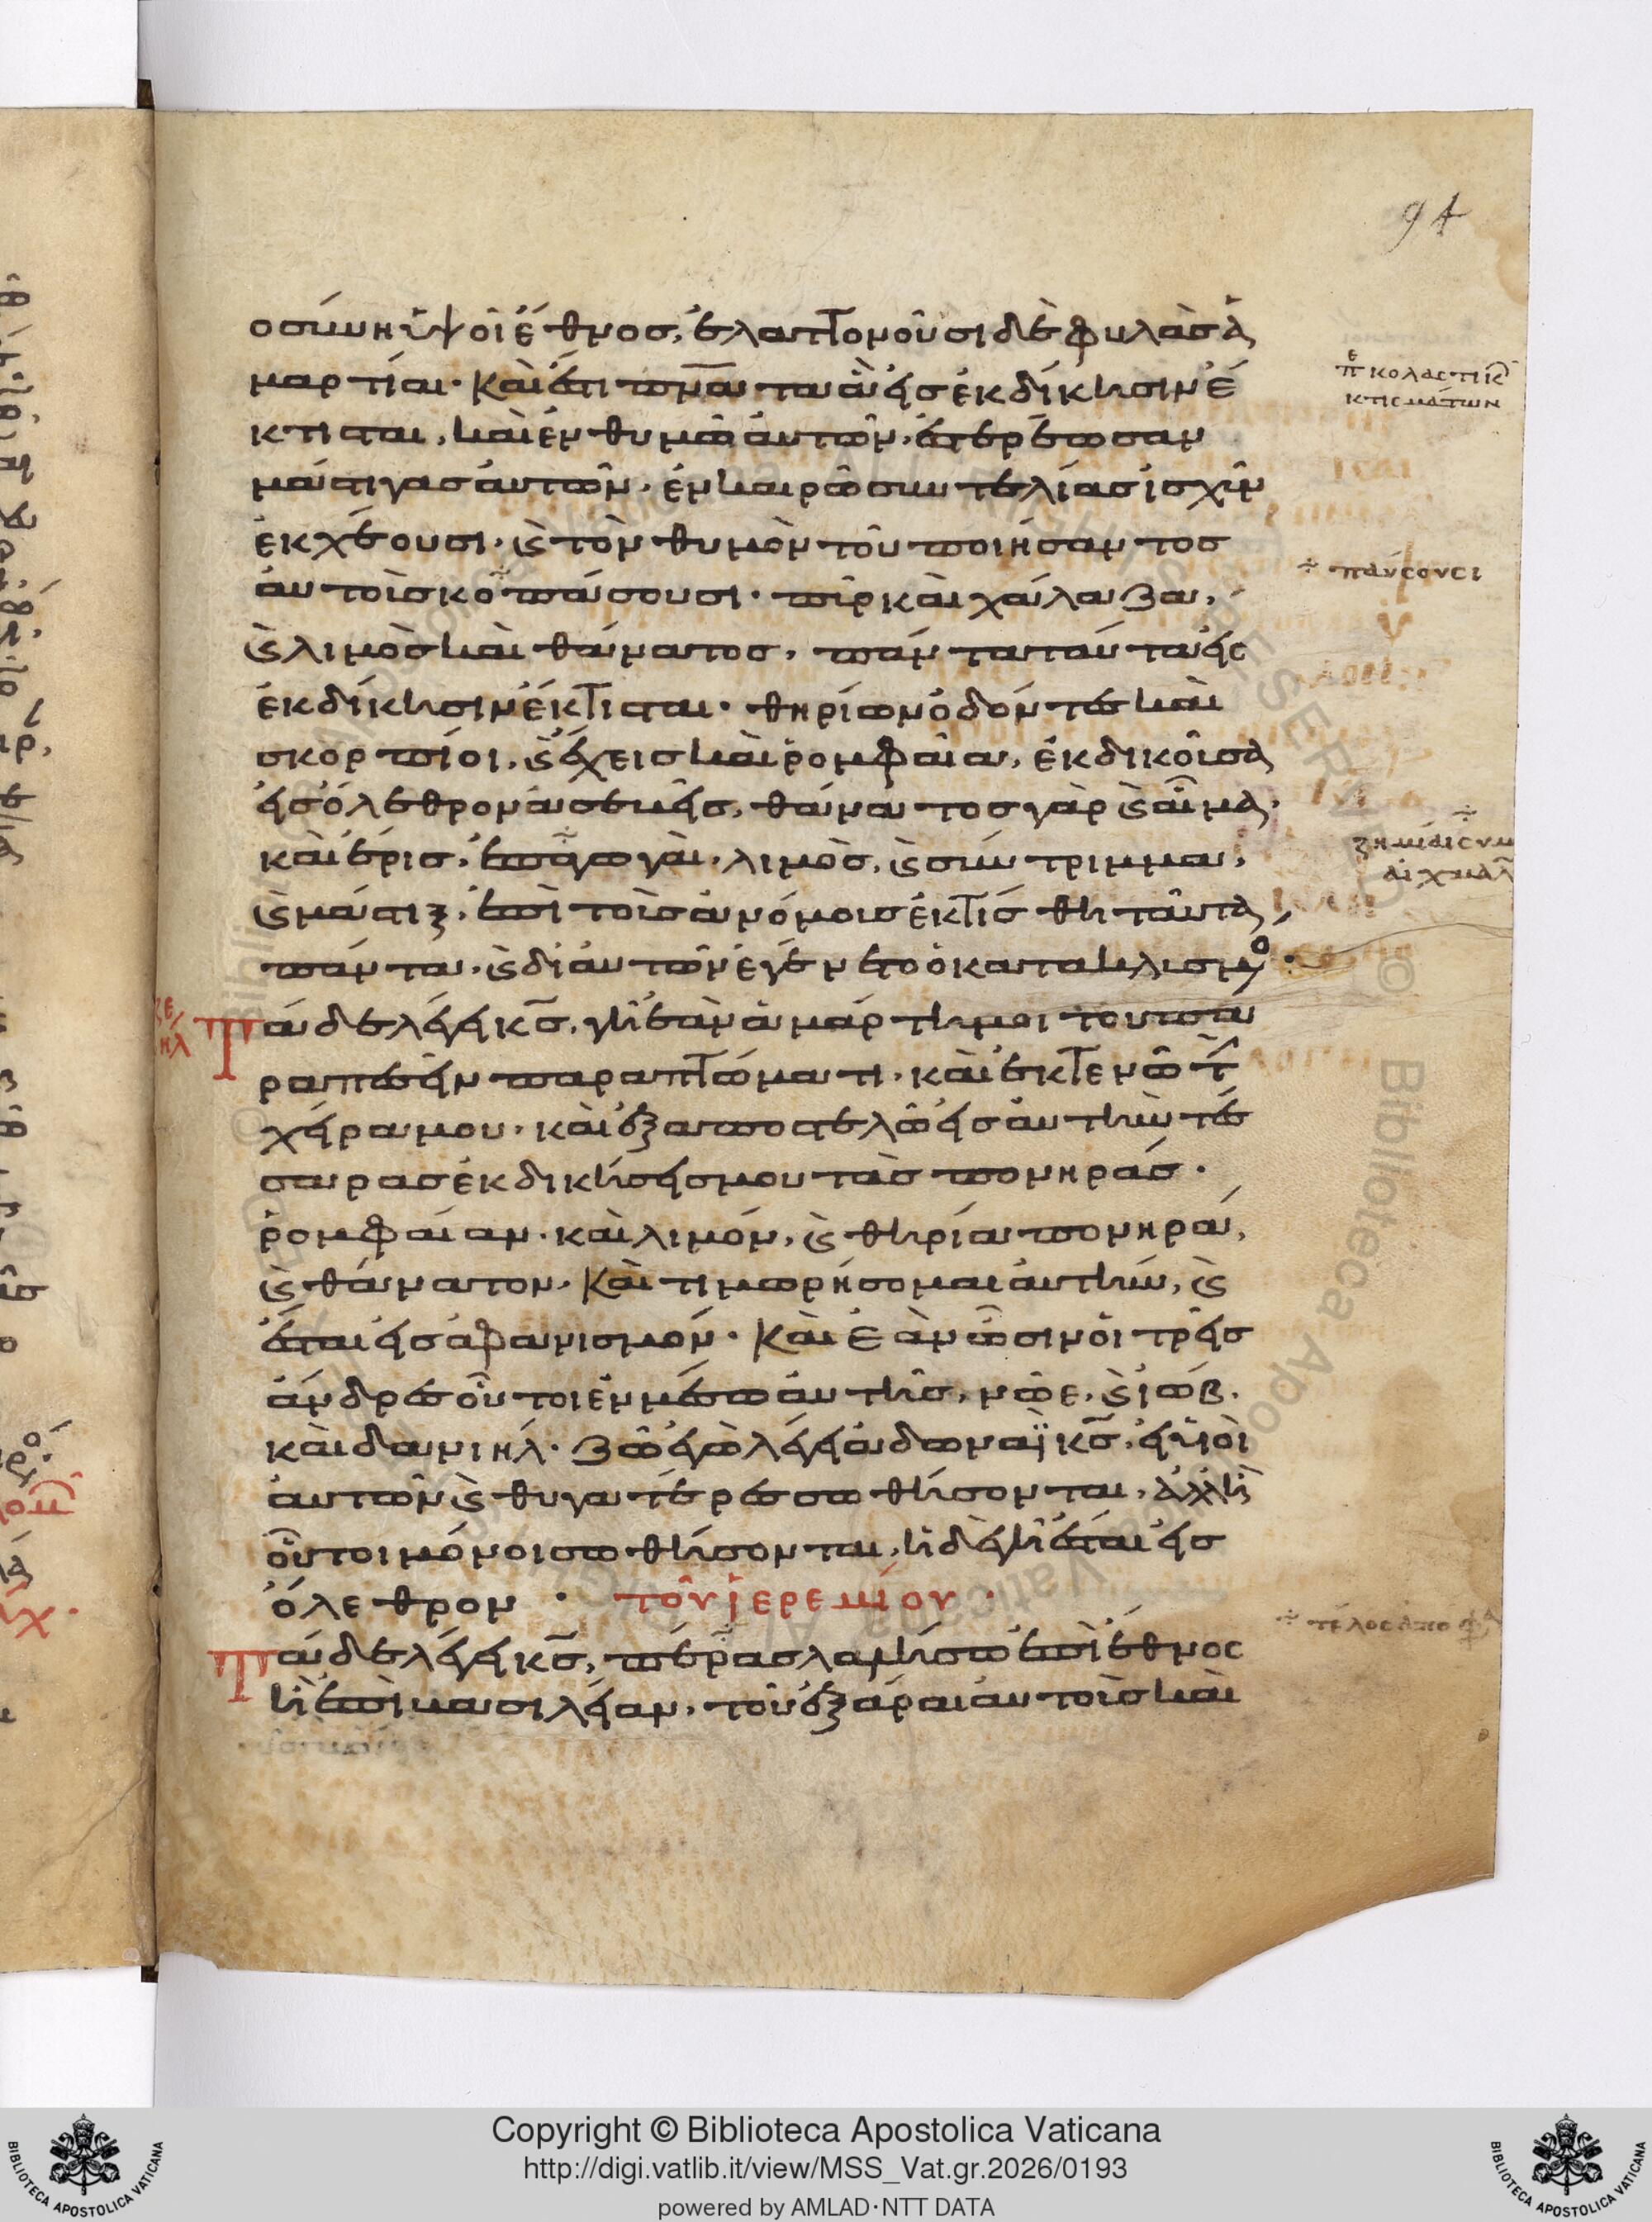 94
οσύνη ὑψοῖ ἔθνος, ἐλαττονοῦσι δὲ φυλὰς ἁ
μαρτίαι· Καὶ ἔστι πνα τὰ εἰς ἐκδίκησιν ἔ
κτισται, καὶ ἐν θυμῶ αὐτῶν, ἐστερέωσαν
μάστιγας αὐτῶν, ἐν καιρῶ συντελίας ἰσχὺν
ἐκχέουσι, ϛ τὸν θυμὸν τοῦ ποιήσαντος
αὐτοὺς κοπάσουσι· πῦρ καὶ χάλαζα,
ϛ λιμὸς καὶ θάνατος, πάντα ταῦτα εἰς
ἐκδίκησιν ἔκτισται· θηρίων ὀδόντες καὶ
σκορπίοι, ϛ ἔχεις καὶ ρομφαία, ἐκδικοῦσα
εἰς ὄλεθρον ἀσεβεῖς, θάνατος γὰρ ϛ αἷμα·
καὶ ἔρις, ἐπαγωγαὶ, λιμὸς, ϛ σύντριμμα,
ϛ μάστιξ, ἐπὶ τοῖς ἀνόμοις ἐκτίσθη ταῦτα
πάντα, ϛ δι' αὐτῶν ἐγένετο ὁ κατακλισμο·
Τάδε λέγει κς, γῆ ἐὰν ἁμάρτη μοι τοῦ πα
ραπεσεῖν παραπτώματι, καὶ ἐκτενῶ τ
χεῖρα μου, καὶ ἐξαποστελῶ εἰς αὐτὴν τέ
σαρας ἐκδικήσεις μου τὰς πονηράς·
ρομφαίαν, καὶ λιμόν, ϛ θηρία πονηρά,
ϛ θάνατον· Καὶ τιμωρήσομαι αὐτήν, ϛ
ἔσται εἰς ἀφανισμόν· Καὶ ἐὰν ὦσιν οἱ τρεῖς
ἄνδρες οὗτοι ἐν μέσω αὐτῆς, νῶε, ϛ ἰώβ,
καὶ δανιήλ· ζῶ ἐγὼ λέγει ἀδωναῒ κς, εἰ υἱοὶ
αὐτῶν ϛ θυγατέρες σωθήσονται, ἀλλ' ἢ
οὗτοι μόνοι σωθήσονται, ἡ δὲ γῆ ἔσται εἰς
ὄλεθρον · τοῦ ἱερεμίου ·
Τάδε λέγει κς, πέρας λαλήσω ἐπὶ ἔθνος
ἢ ἐπὶ βασιλείαν, τοῦ ἐξάραι αὐτοὺς καὶ
κολαστικ
κτισμάτων
παύσουσι
τέλος
Copyright © Biblioteca Apostolica Vaticana
http://digi.vatlib.it/view/MSS_Vat.gr.2026/0193
powered by AMLAD·NTT DATA